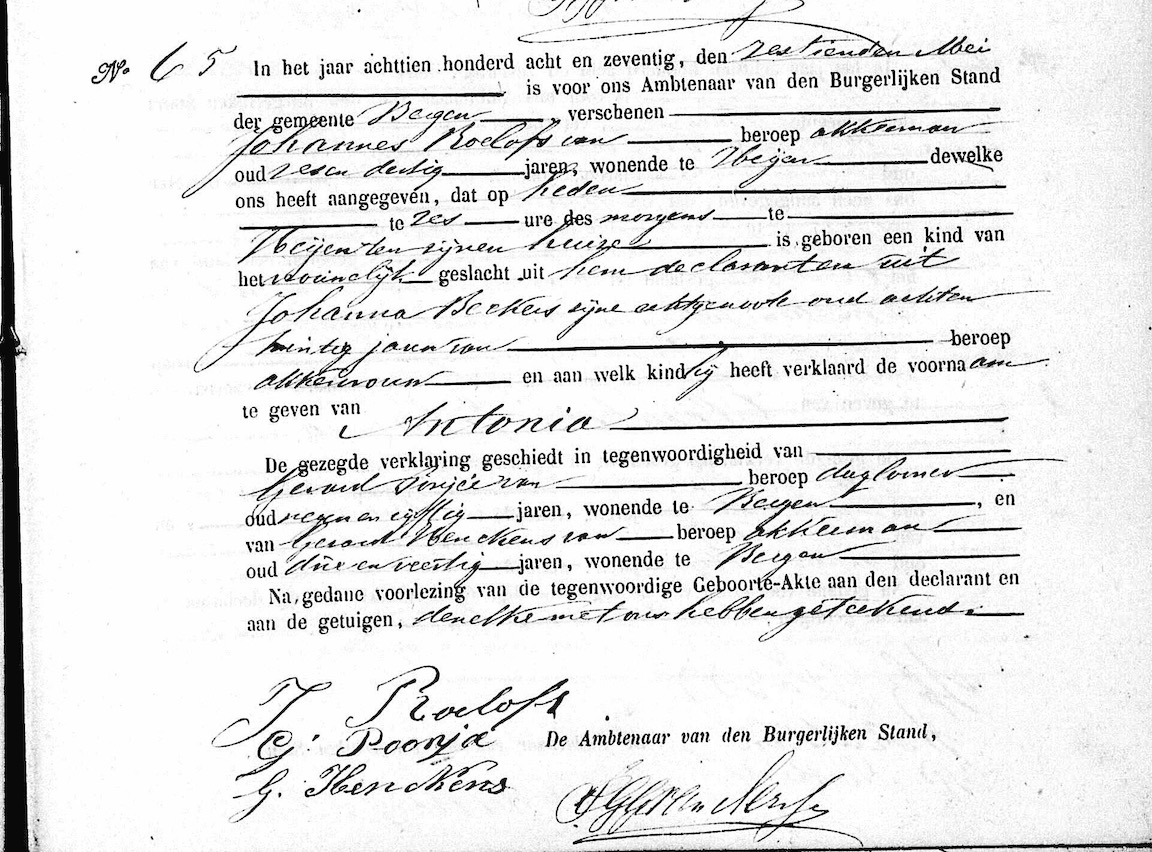 No. 65 In het jaar achttien honderd acht en zeventig, den zestienden Mei
is voor ons Ambtenaar van den Burgerlijken Stand
der gemeente Bergen verschenen
Johannes Roelofs van beroep akkerman
oud zes en dertig jaren, wonende te Heijen dewelke
ons heeft aangegeven, dat op heden
te zes ure des morgens te
Heijen ten zijnen huize is geboren een kind van
het vrouwelijk geslacht uit hem declarant en uit
Johanna Beckers zijne echtgenoote oud acht en
twintig jaren van beroep
akkervrouw en aan welk kind hij heeft verklaard de voornaam
te geven van Antonia
De gezegde verklaring geschiedt in tegenwoordigheid van
Gerard van beroep daglooner
oud negen en vijftig jaren, wonende te Bergen, en
van Gerard Henckens van beroep akkerman
oud drie en veertig jaren, wonende te Bergen
Na gedane voorlezing van de tegenwoordige Geboorte-Akte aan den declarant en
aan de getuigen, dewelke met ons hebben geteekend.
J Roelofs
G. Poorjé
De Ambtenaar van den Burgerlijken Stand,
G. Henckens